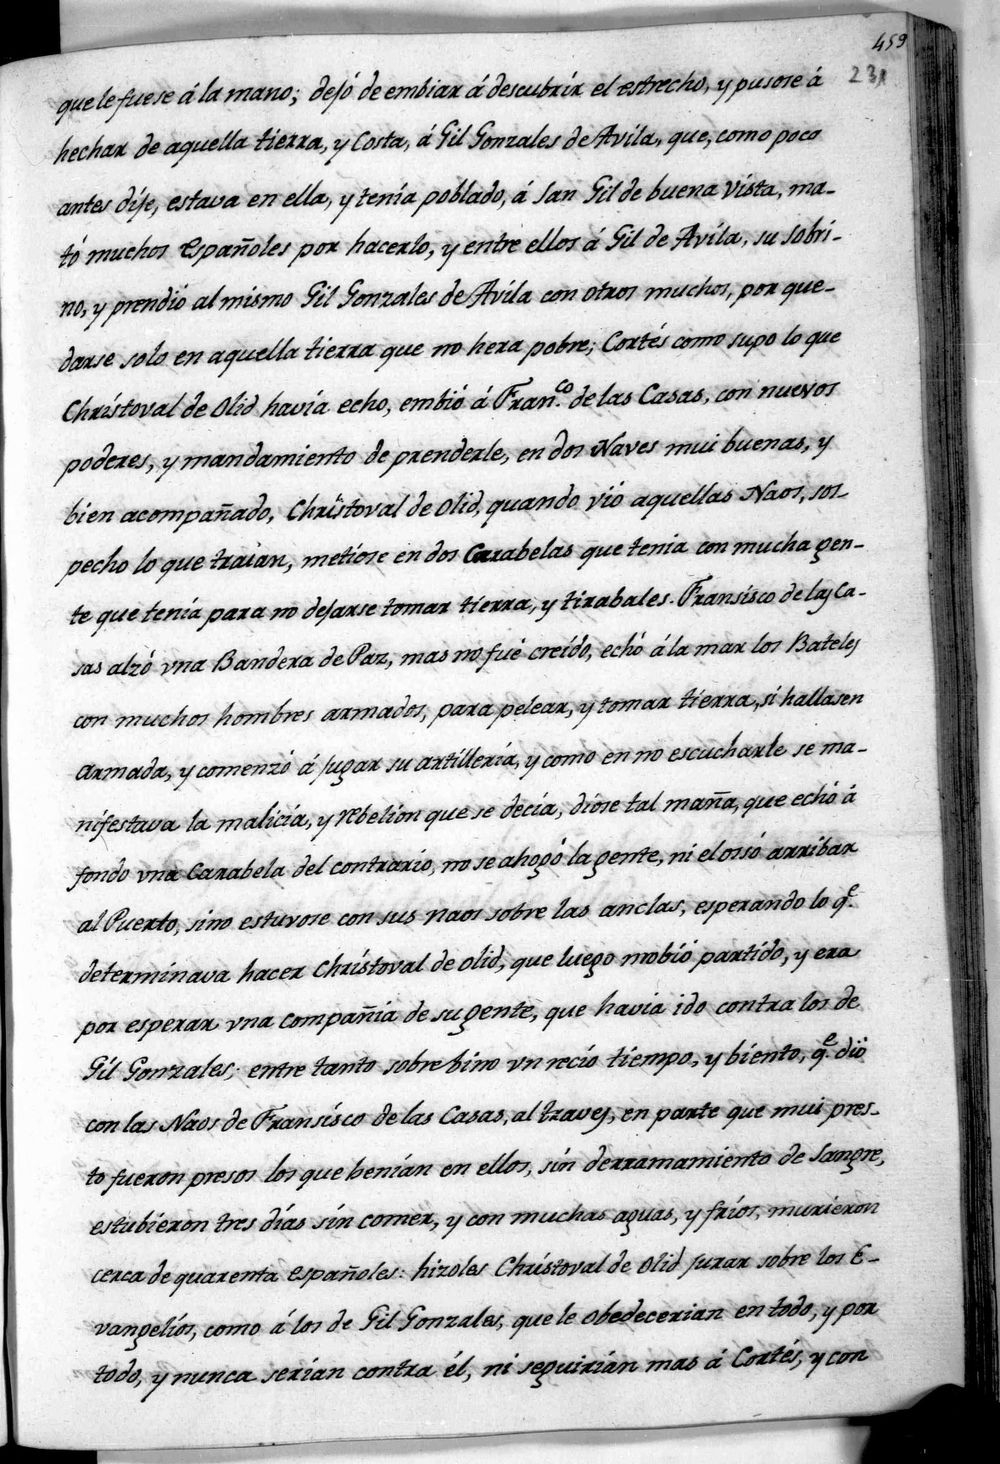 459
231
que le fuese á la mano; dejó de embiar á descubrir el estrecho, y pusose á
hechar de aquella tierra, y Costa, á Gil Gonzales de Avila, que, como poco
antes dije, estava en ella, y tenia poblado, á San Gil de buena Vista, ma-
tó muchos Españoles por hacerlo, y entre ellos á Gil de Avila, su sobri-
no, y prendió al mismo Gil Gonzales de Avila con otros muchos, por que-
darse solo en aquella tierra que no hera pobre; Cortés como supo lo que
Christoval de Olid havia echo, embió á Fran.co de las Casas, con nuevos
poderes, y mandamiento de prenderle, en dos Naves mui buenas, y
bien acompañado, Christoval de Olid, quando vió aquellas Naos, sos-
pecho lo que traian, metiose en dos Carabelas que tenia con mucha gen-
te que tenia para no dejarse tomar tierra, y tirabales. Fransisco de las Ca-
sas alzó vna Bandera de Paz, mas no fué creido, echó á la mar los Bateles
con muchos hombres armados, para pelear, y tomar tierra, si hallasen
armada, y comenzó á jugar su artilleria, y como en no escucharle se ma-
nifestava la malicia, y rebelion que se decia, diose tal maña, que echó á
fondo vna Carabela del contrario, no se ahogó la gente, ni el ossó arribar
al Puerto, sino estuvose con sus naos sobre las anclas, esperando lo q.e
determinava hacer Christoval de Olid, que luego mobió partido, y era
por esperar vna compañia de su gente, que havia ido contra los de
Gil Gonzales; entre tanto sobrebino vn recio tiempo, y biento, q.e dió
con las Naos de Fransisco de las Casas, al traves, en parte que mui pres-
to fueron presos los que benian en ellos, sin derramamiento de Sangre,
estubieron tres dias sin comer, y con muchas aguas, y frios, murieron
cerca de quarenta Españoles: hizoles Christoval de Olid jurar sobre los E-
vangelios, como á los de Gil Gonzales, que le obedecerian en todo, y por
todo, y nunca serian contra él, ni seguirian mas á Cortés, y con